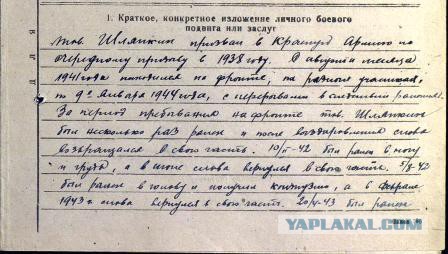 1. Краткое, конкретное изложение личного боевого
подвига или заслуг
тов. Шляпкин призван в Красную Армию по
очередному призыву в 1938 году. С августа месяца
1941 года находился на фронте, на разных участках,
по 9ое января 1944 года, с перерывами в следствии ранений.
За период пребывания на фронте тов. Шляпкин
был несколько раз ранен и после выздоровления снова
возвращался в свою часть. 10/II-42 был ранен в ногу
и грудь, а в июне снова вернулся в свою часть. 5/8-42
был ранен в голову и получил контузию, а в феврале
1943 г снова вернулся в свою часть. 20/4-43 был ранен
для
YAPLAKAL.COM